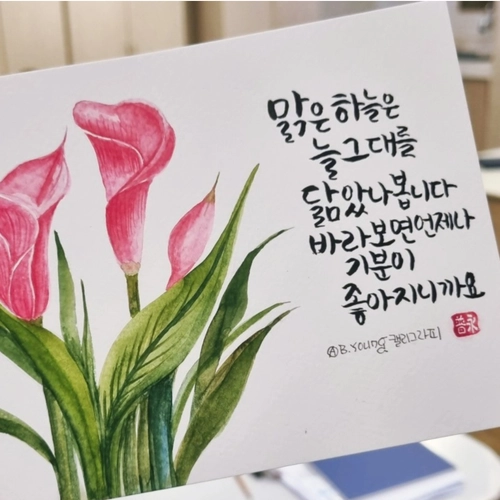 맑은 하늘은
늘 그대를
닮았나봅니다
바라보면 언제나
기분이
좋아지니까요
B.Young캘리그라피